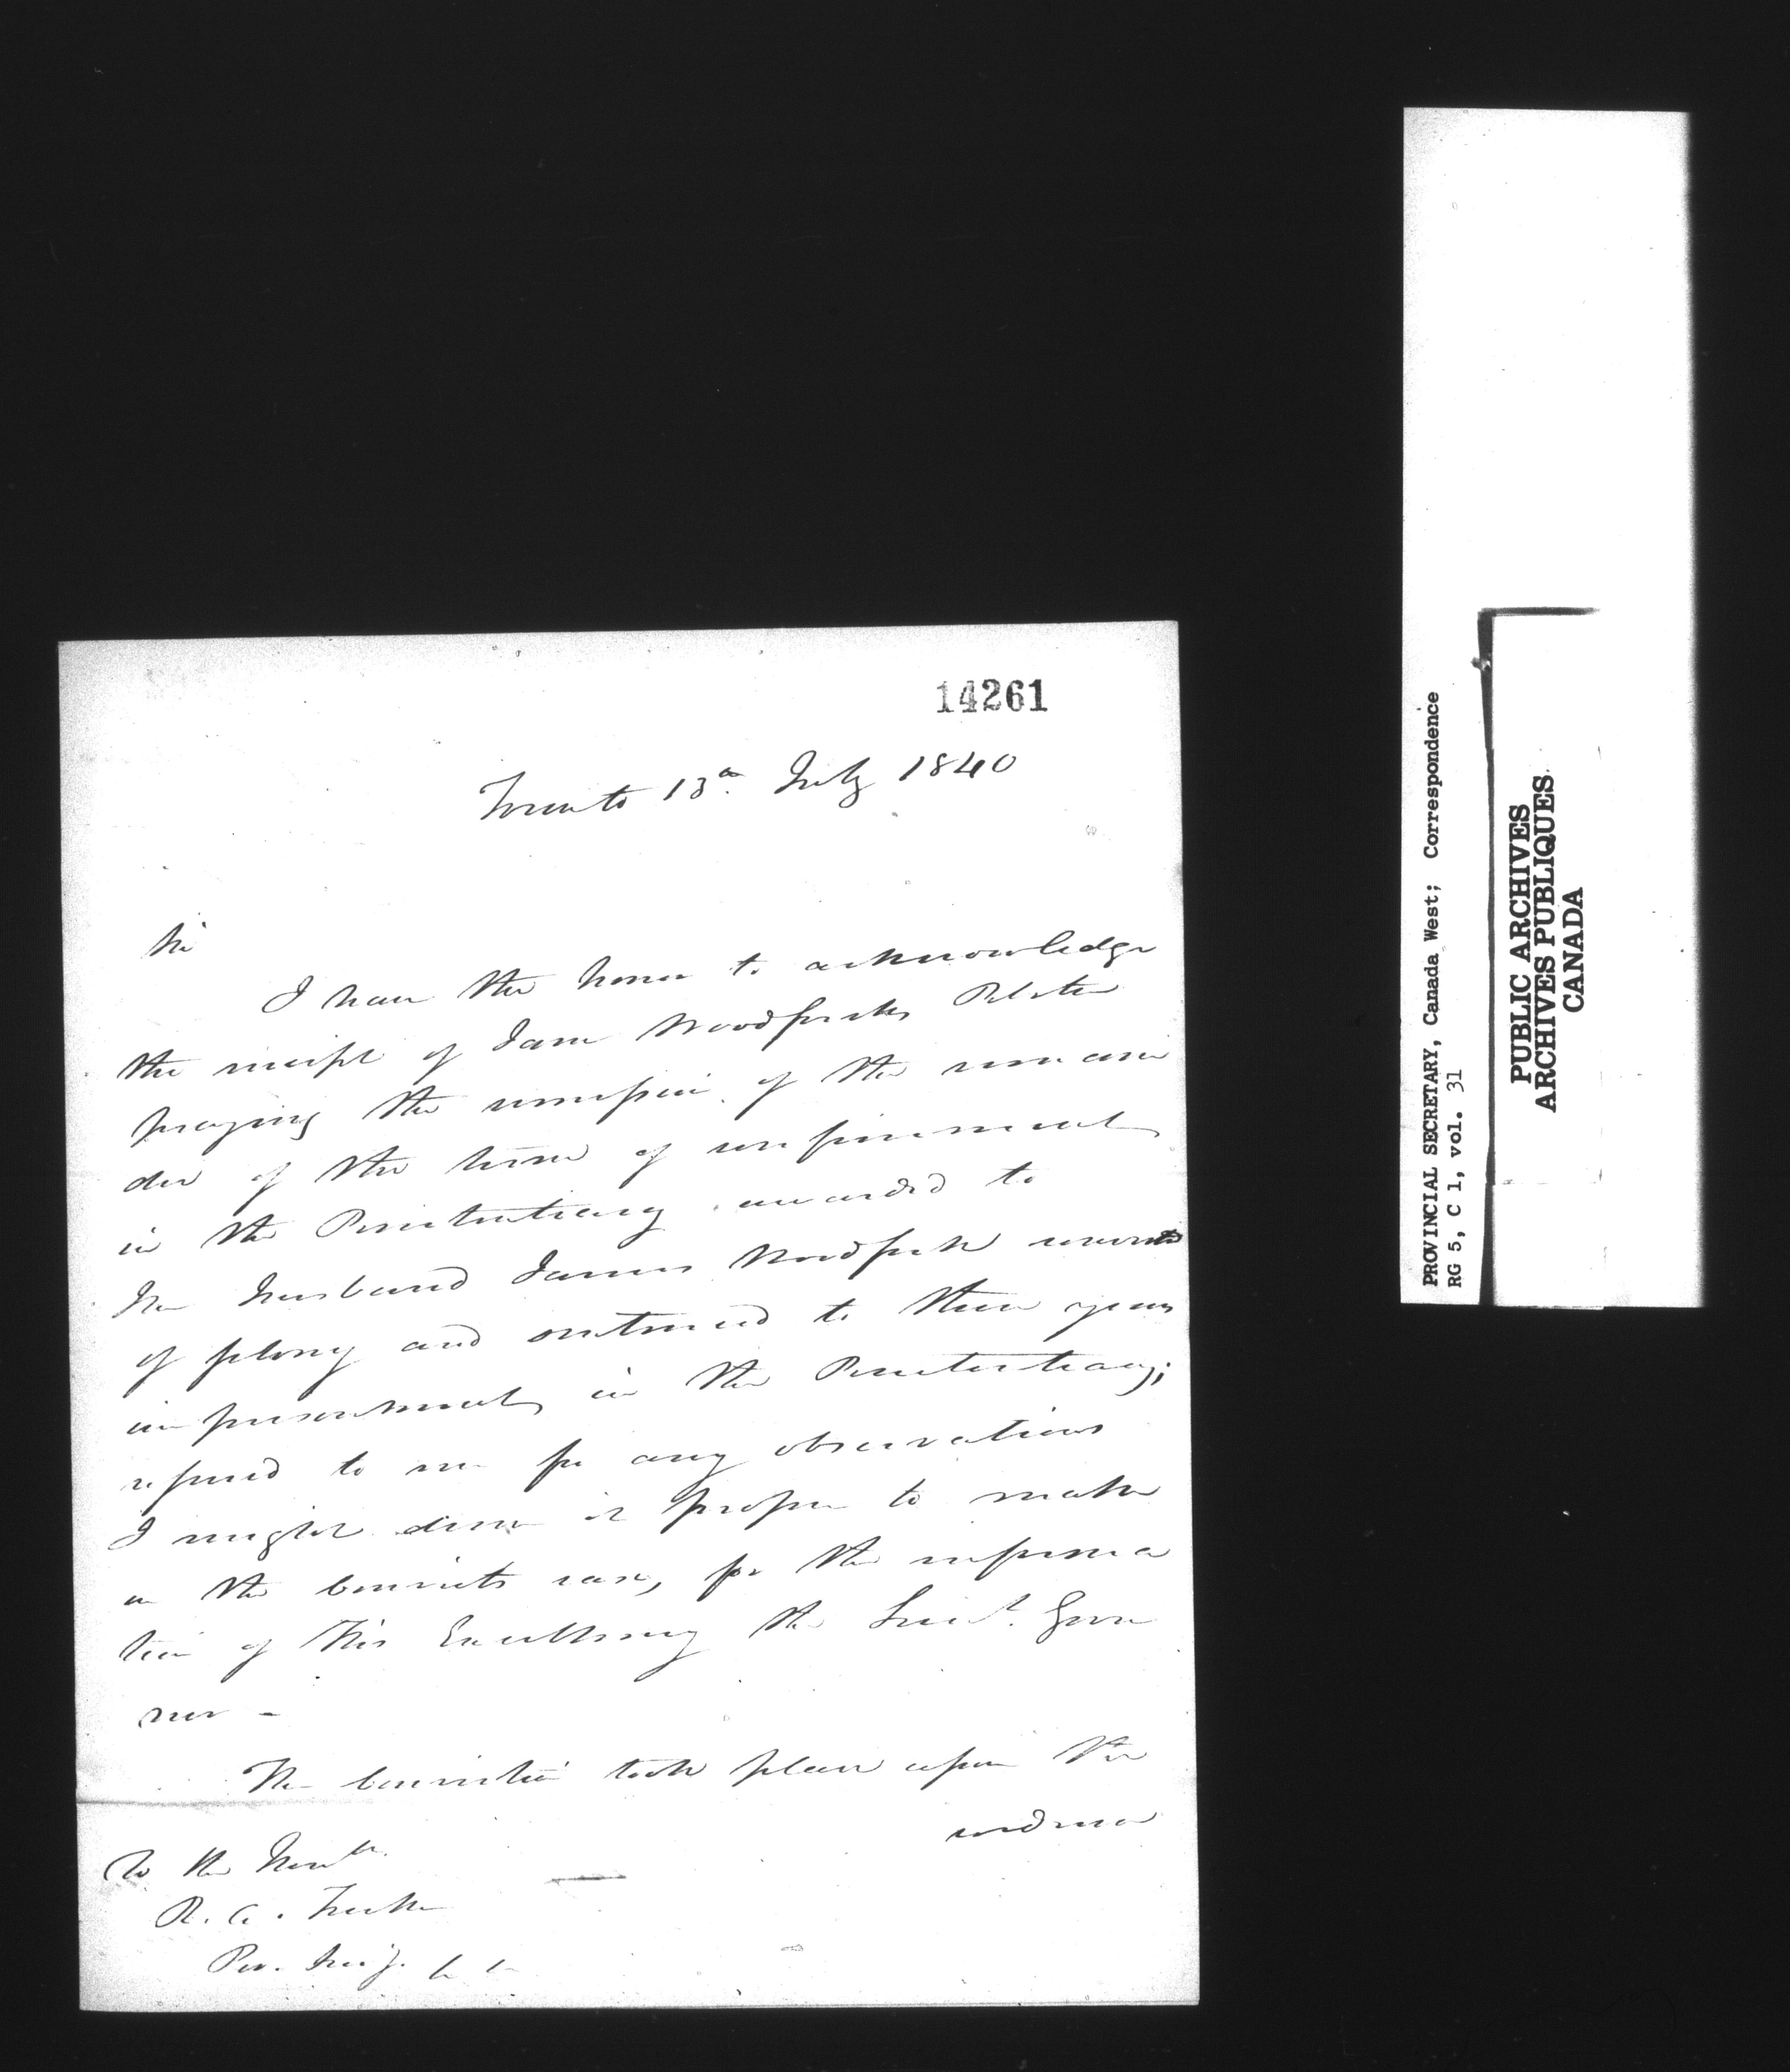 14261
Toronto 13th July 1840
Sir
I have the honor to acknowledge
the receipt of Jane Woodforks Petition
praying the remission of the remain
der of the term of confinement
in the Penitentiary awarded to
her husband James Woodfork convicted
of felony and sentenced to three years
imprisonment in the Penitentiary;
referred to me for any observations
I might deem it proper to make
on the Convicts case, for the informa
tion of His Excellency the Lieut. Gover
nor -
The Conviction took place upon the
evidence
To the Honble.
R. A. Tucker
Pro. Secy.
PROVINCIAL SECRETARY, Canada West; Correspondence
RG 5, C 1, vol. 31
PUBLIC ARCHIVES
ARCHIVES PUBLIQUES
CANADA